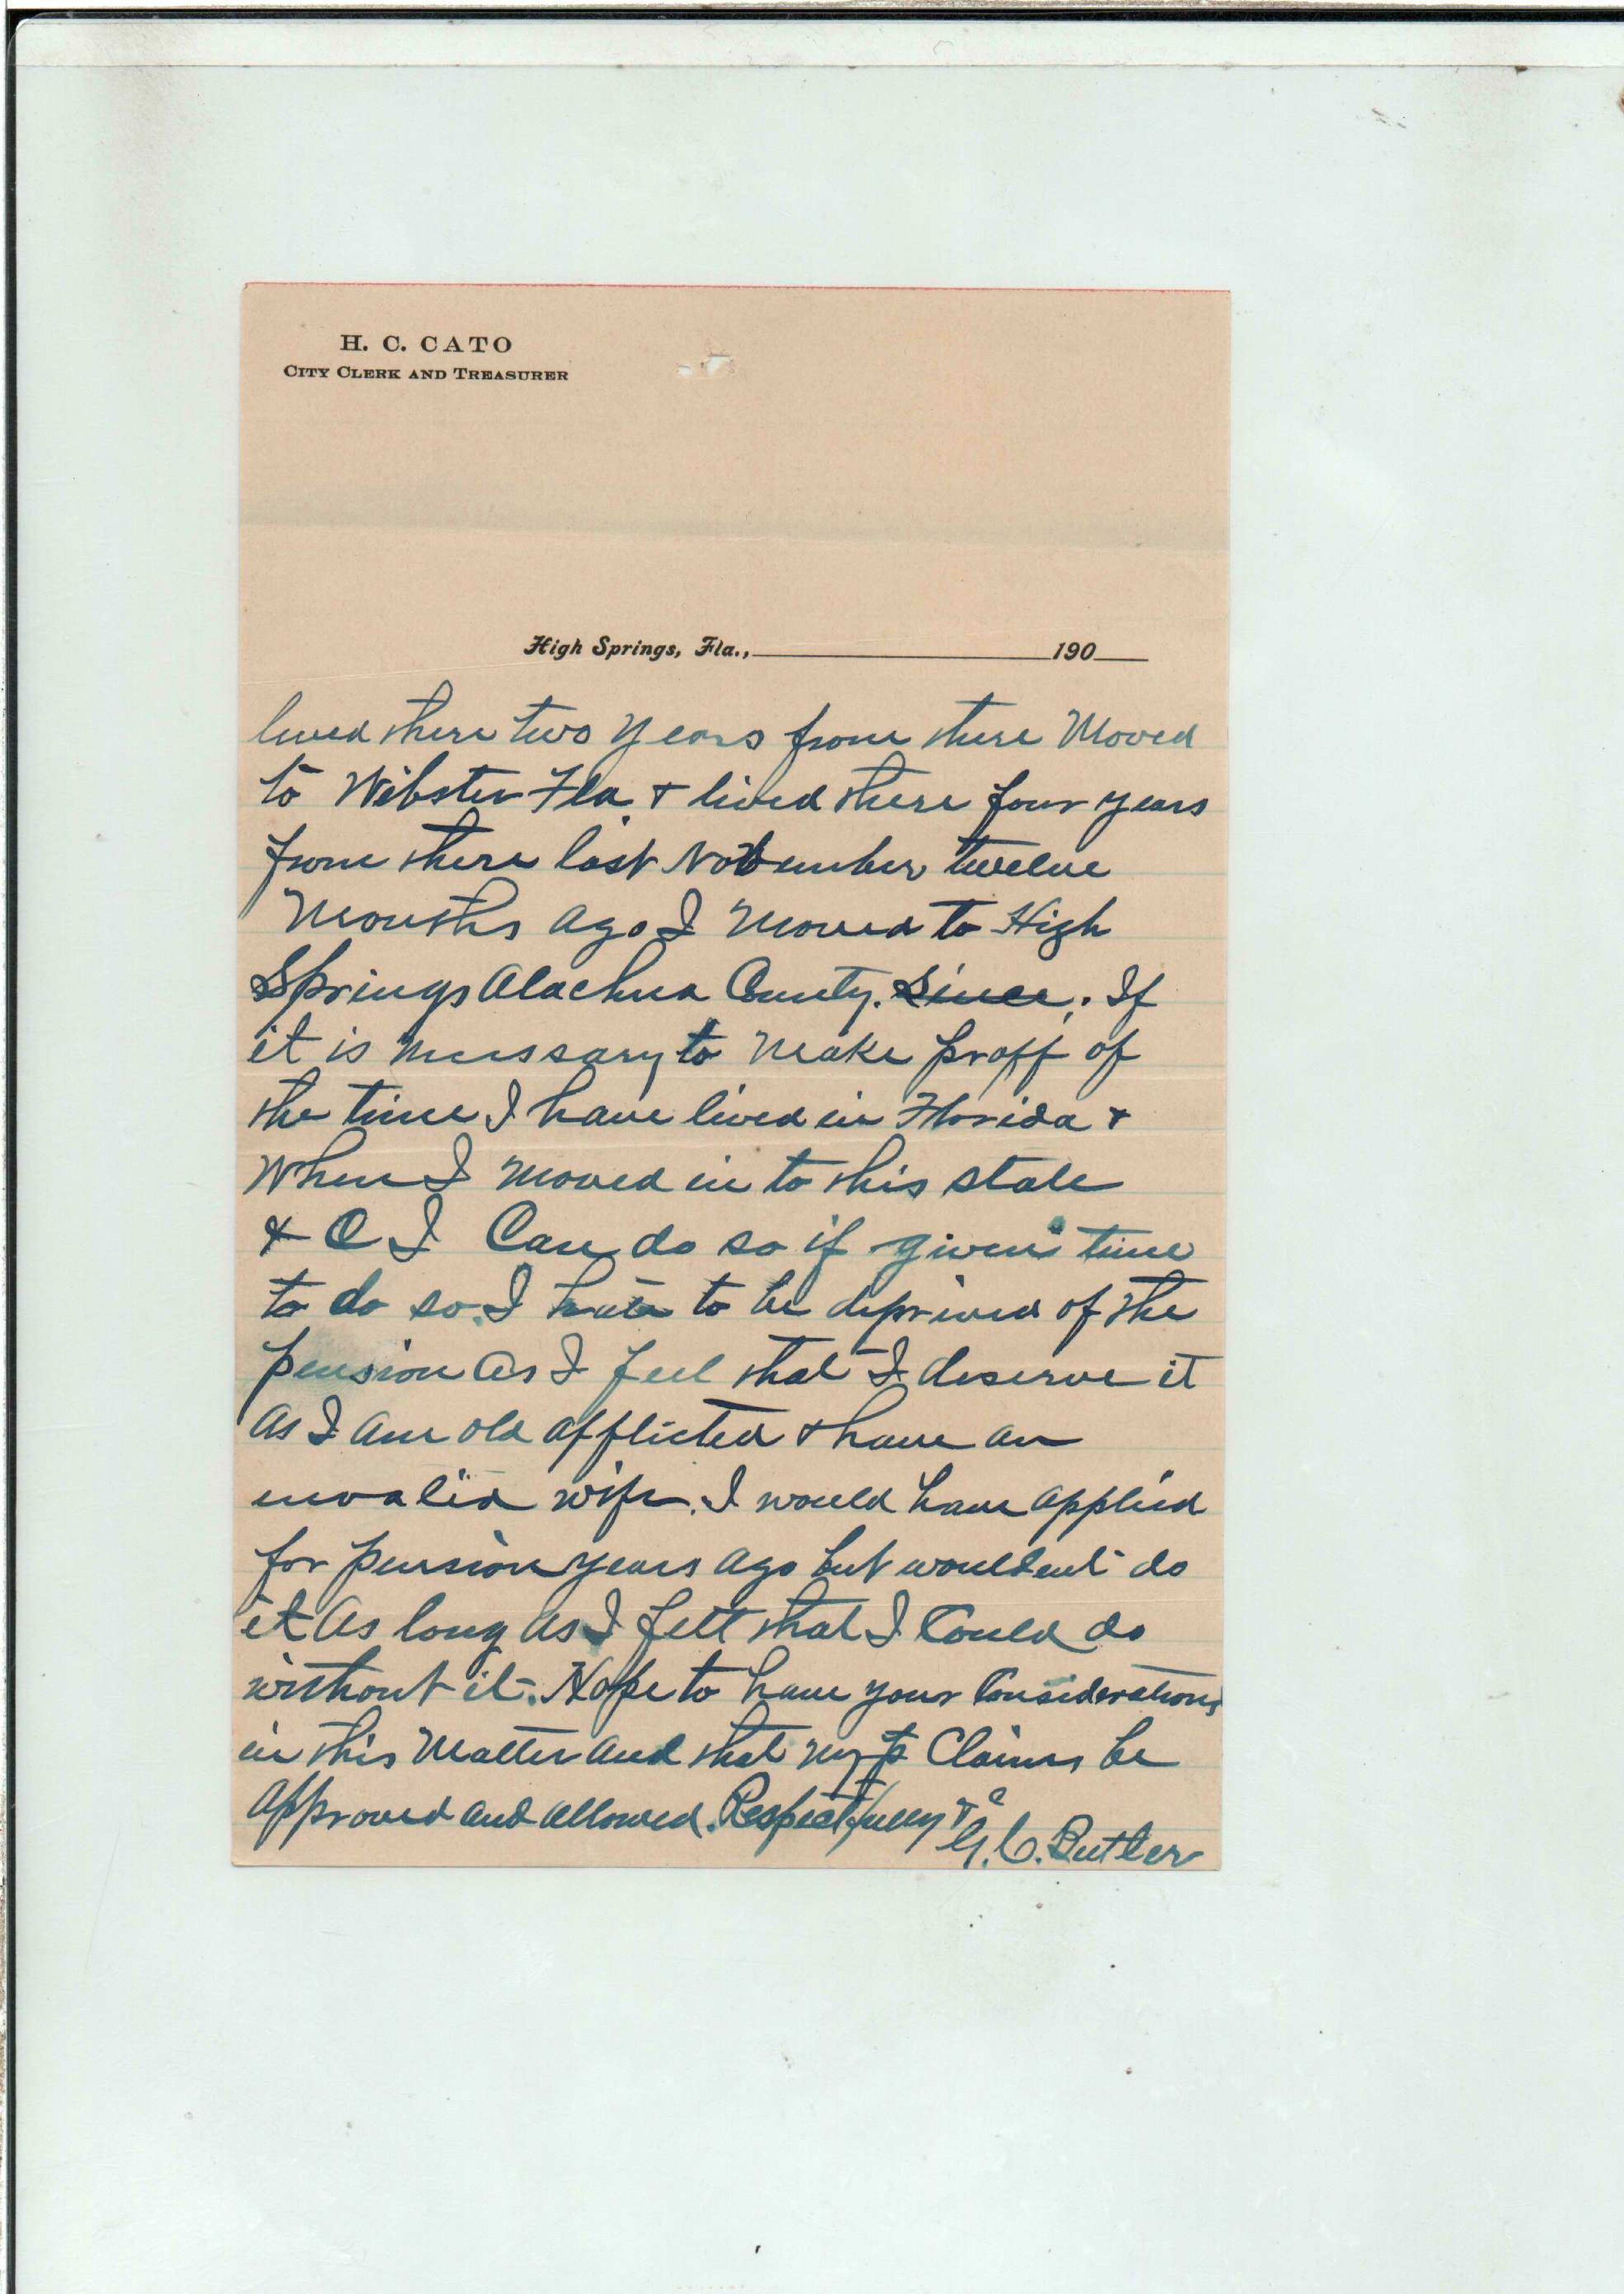 H. C. CATO
CITY CLERK AND TREASURER
High Springs, Fla., 190
lived there two years from there Moved
to Webster Fla. & lived there four years
from there last November twelve
Months ago I Moved to High
Springs Alachua County. Since, . If
it is necessary to Make proff of
the time I have lived in Florida &
When I moved in to this state
& C I Can do so if given time
to do so. I hate to be deprived of the
pension as I feel that I deserve it
As I am old afflicted & have an
invalid wife. I would have applied
for pension years ago but wouldent do
it As long as I felt that I Could do
without it. Hope to have your Considerations
in this Matter and that my Claims be
approved and allowed. Respectfully &c
G. C. Butler